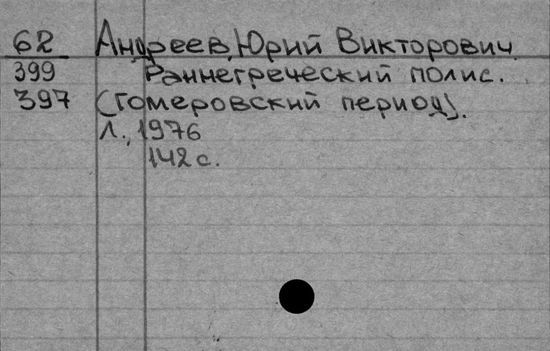 62 Андреев, Юрий Викторович
399 Раннегреческий полис.
397 (Гомеровский период).
Л., 1976
142 с.